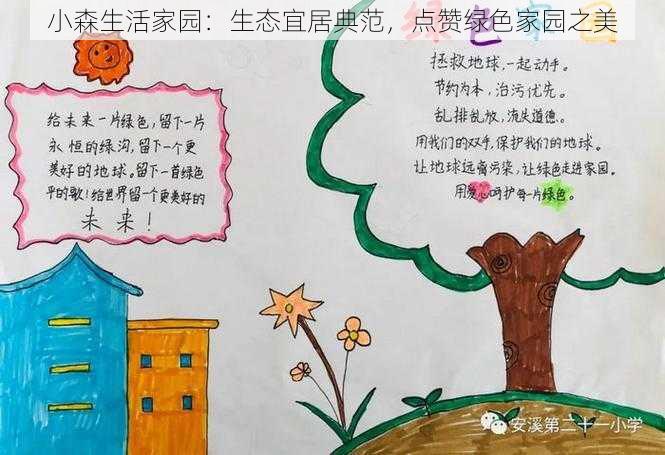 小森生活家园：生态宜居典范，点赞绿色家园之美
给未来一片绿色，留下一片
永恒的绿沟，留下一个更
美好的地球。留下一首绿色
平的歌！给世界留一个更美好的
未来！
绿色家园
拯救地球，一起动手。
节约为本，治污优先。
乱排乱放，流失道德。
用我们的双手，保护我们的地球。
让地球远离污染，让绿色走进家园。
用爱心呵护每一片绿色。
安溪第二十一小学